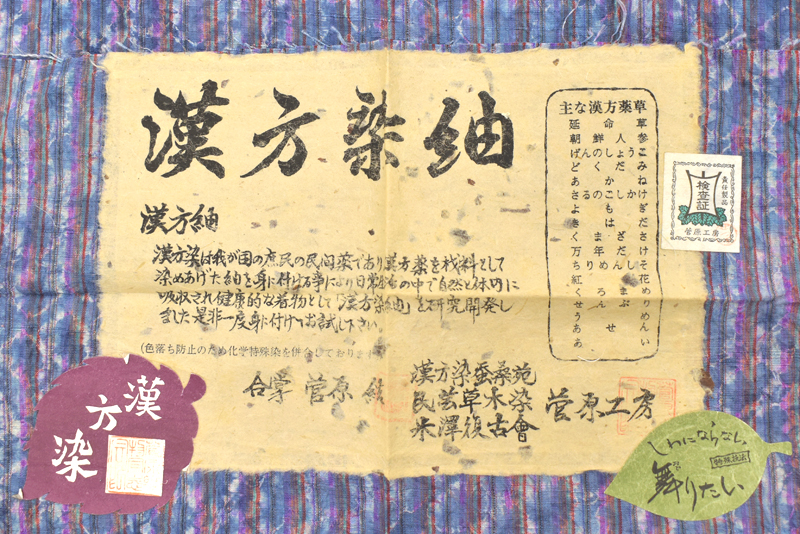 漢方染紬
漢方紬
漢方染は我が国の庶民の民间薬であり漢方薬を材料として
染めあげた紬を身に付ける事により日常着の中で自然と体内に
吸収され健康的な着物として「漢方染紬」を研究開発し
ました是非一度身に付けてお試し下さい。
(色落ち防止のため化学特殊染を併合しております
合掌 菅原
漢方染蚕桑苑
民芸草木染
米澤復古會
菅原工房
主な漢方薬草
延命草
朝鮮人参
げんのしょうこ
どくだみ
あかね
さるのこしかけ
よもぎ
きはだ
くまざさ
万年だけ
ちりめんしそ
紅花
くろまめ
せんぶり
うめ
あせん
あい
責任製品
検査証
菅原工房
漢方染
しわにならない
特殊技法
舞りたい